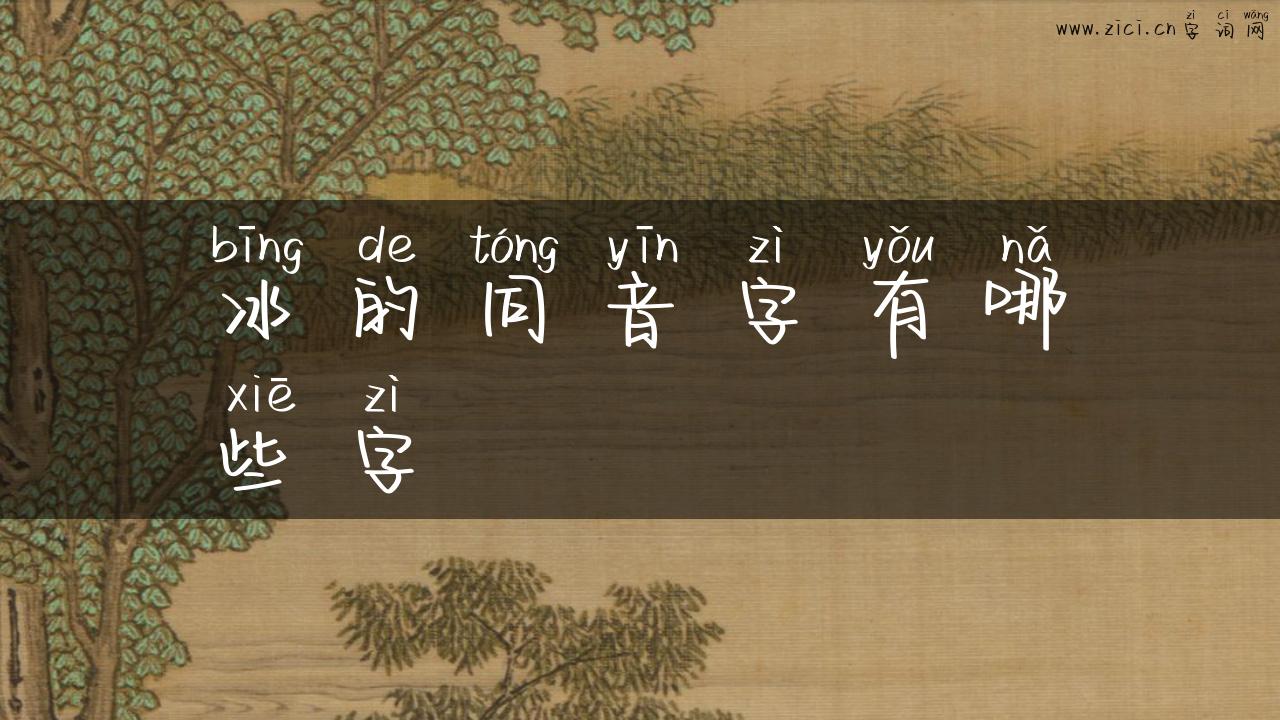 zì cí wǎng
www.zici.cn 字词网
bīng de tóng yīn zì yǒu nǎ
冰的同音字有哪
xiē zì
些字